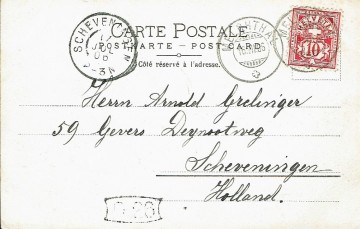 CARTE POSTALE
POSTKARTE - POSTCARD
Côté réservé à l'adresse.
SCHEVENINGEN
17
10
Herrn Arnold Grelinger
59 Gevers Deynootweg
Scheveningen
Holland.